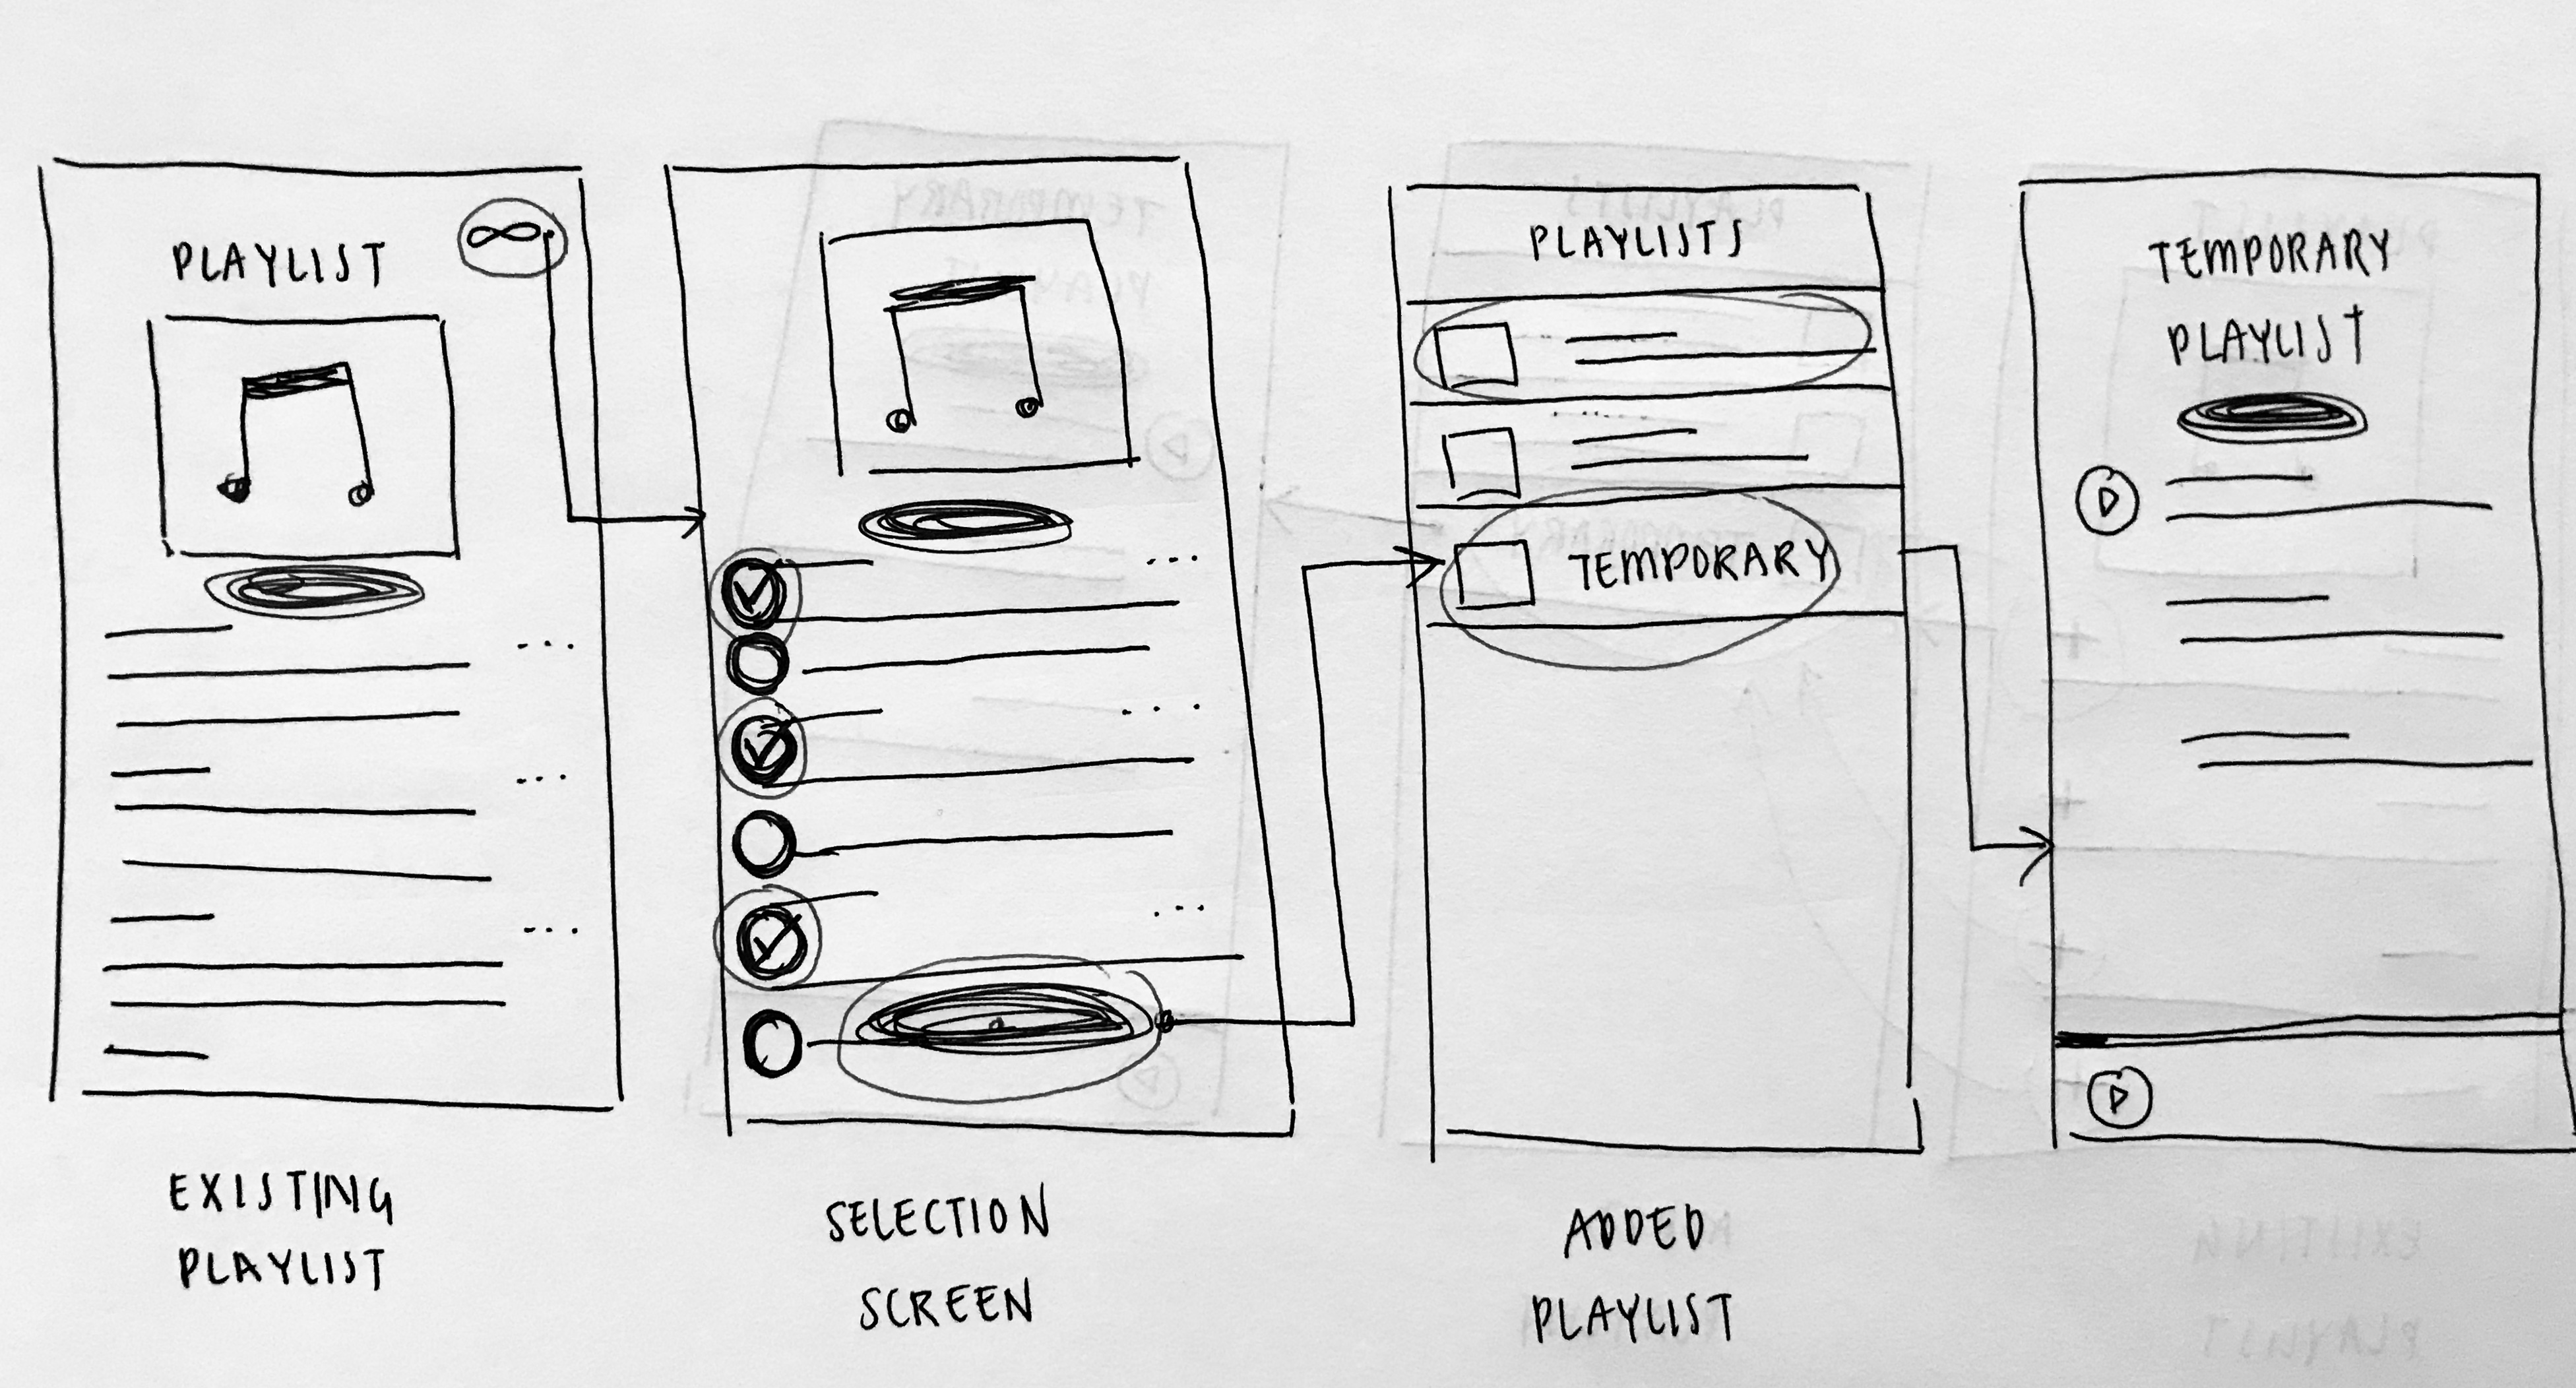 PLAYLIST
EXISTING
PLAYLIST
SELECTION
SCREEN
PLAYLISTS
TEMPORARY
ADDED
PLAYLIST
TEMPORARY
PLAYLIST